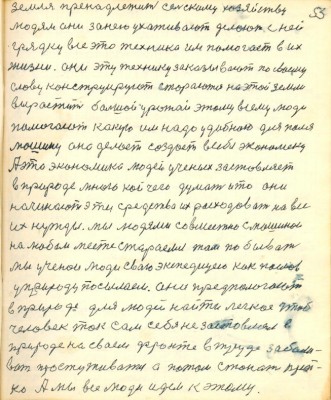 53
земля пренадлежит сельскому хозяйству
людям они занею ухаживают делают с ней
грядку все это техника им помогает в их
жизни. они эту технику заказывают по своему
слову конструируют стораютс на этой земли
вырастить большой урожай этому всему люди
помогают какую им надо удобною для поля
машину она делает создает всебе экономику
А это экономика людей ученых заставляет
в природе много кой чего думать что они
начинают эти средства их расходоват на все
их нужды. мы людями совместно с машиной
на любом месте стараемся там по бывать
мы ученои люди сваю экспедицею как
у природу посылаем. Они предпологают
в природе для людей найти легкое чтоб
человек так сам себя не заставлял в
природе на своем фронте в труде забалы-
ват простуживатся а потом стонат
ко А мы все люди идем к этому.